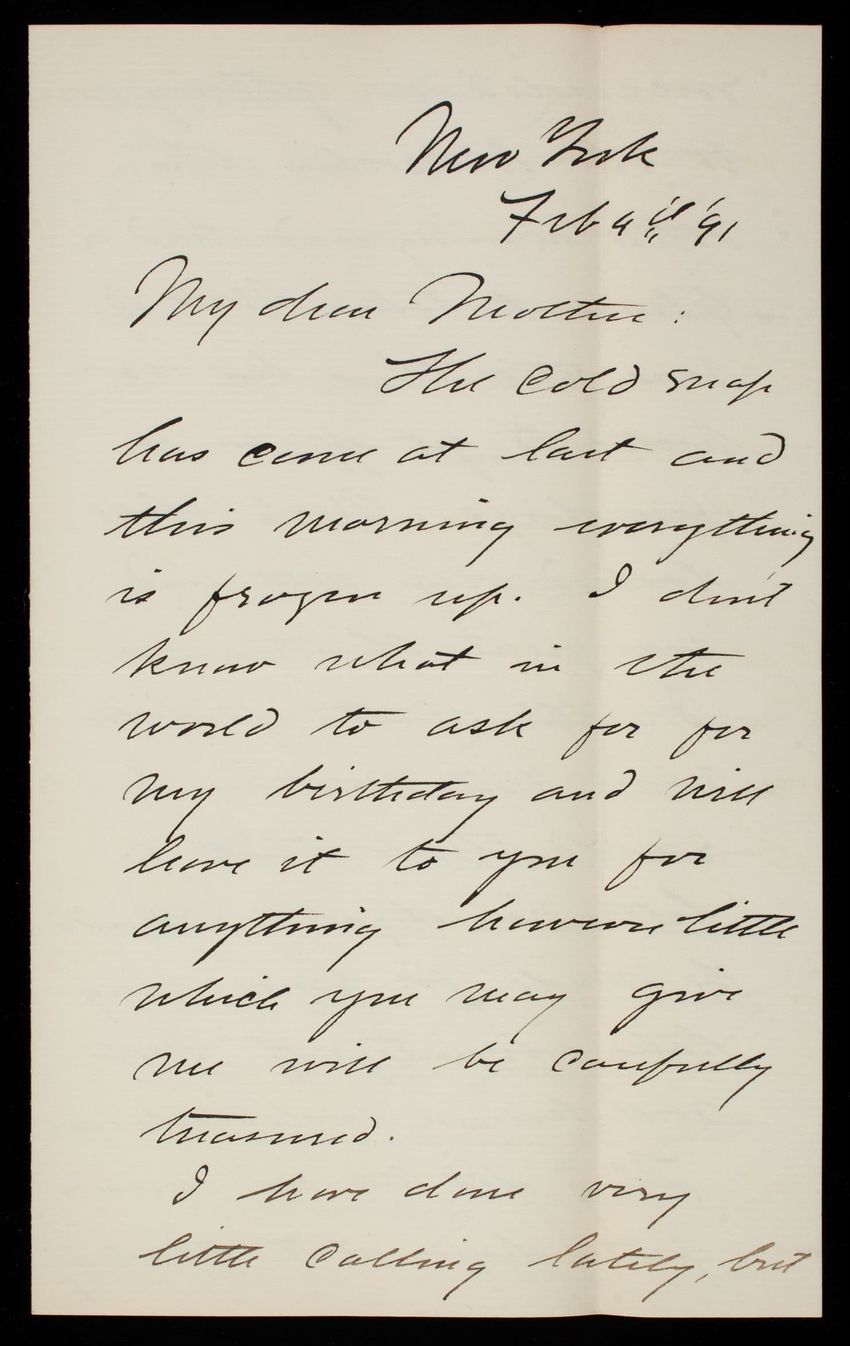 New York
Feb 4th '91
My dear Mother:
The cold snap
has come at last and
this morning everything
is frozen up. I don't
know what in the
world to ask for for
my birthday and will
leave it to you for
anything however little
which you may give
me will be carefully
treasured.
I have done very
little calling lately, but